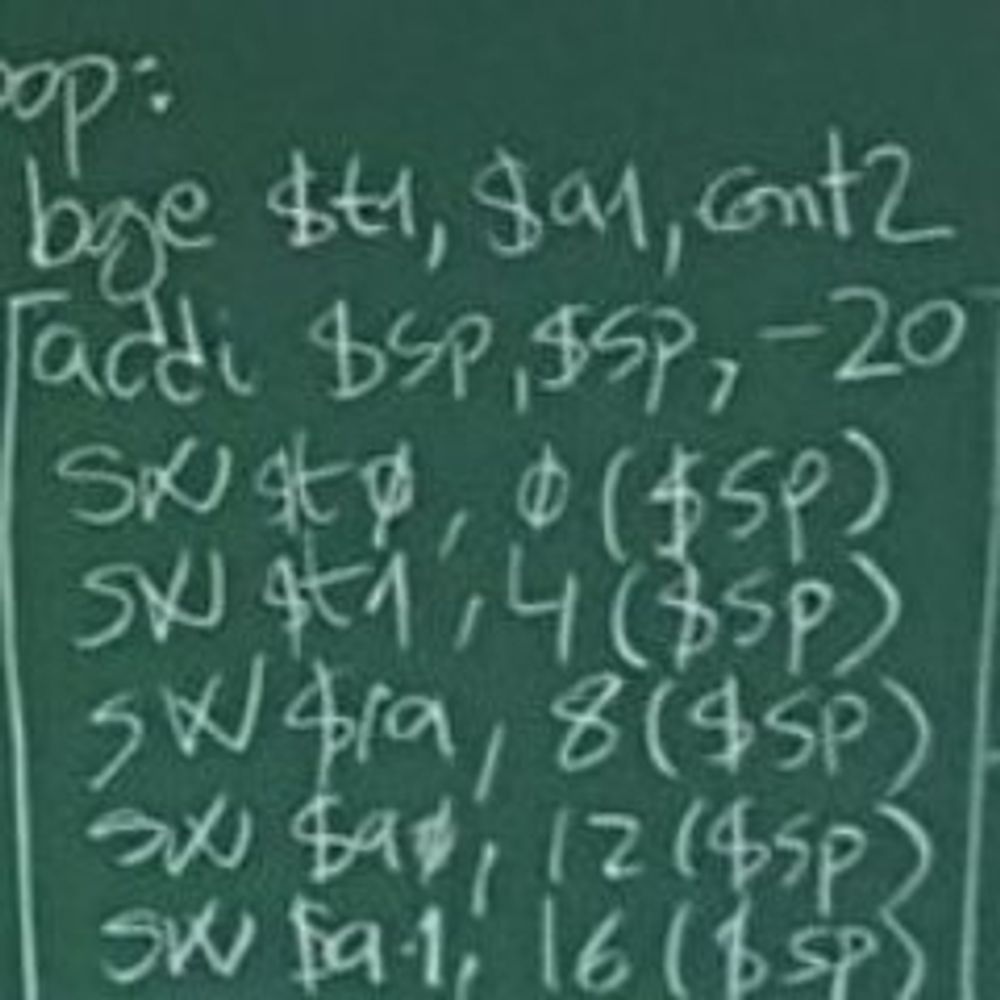 oop:
bge $t1, $a1, cont2
addi $sp, $sp, -20
sw $t0, 0($sp)
sw $t1, 4($sp)
sw $ra, 8($sp)
sw $a0, 12($sp)
sw $a1, 16($sp)